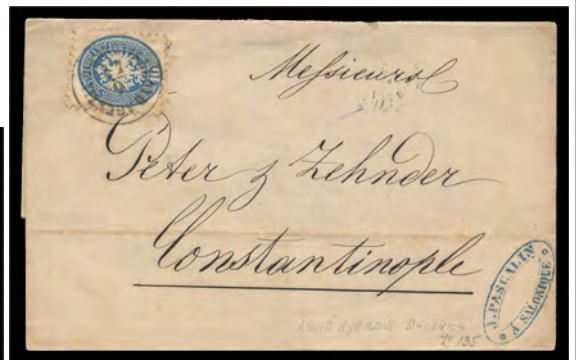 Messieurs
Peter & Zehnder
Constantinople
J. PASCALIN
A SALONIQUE
135